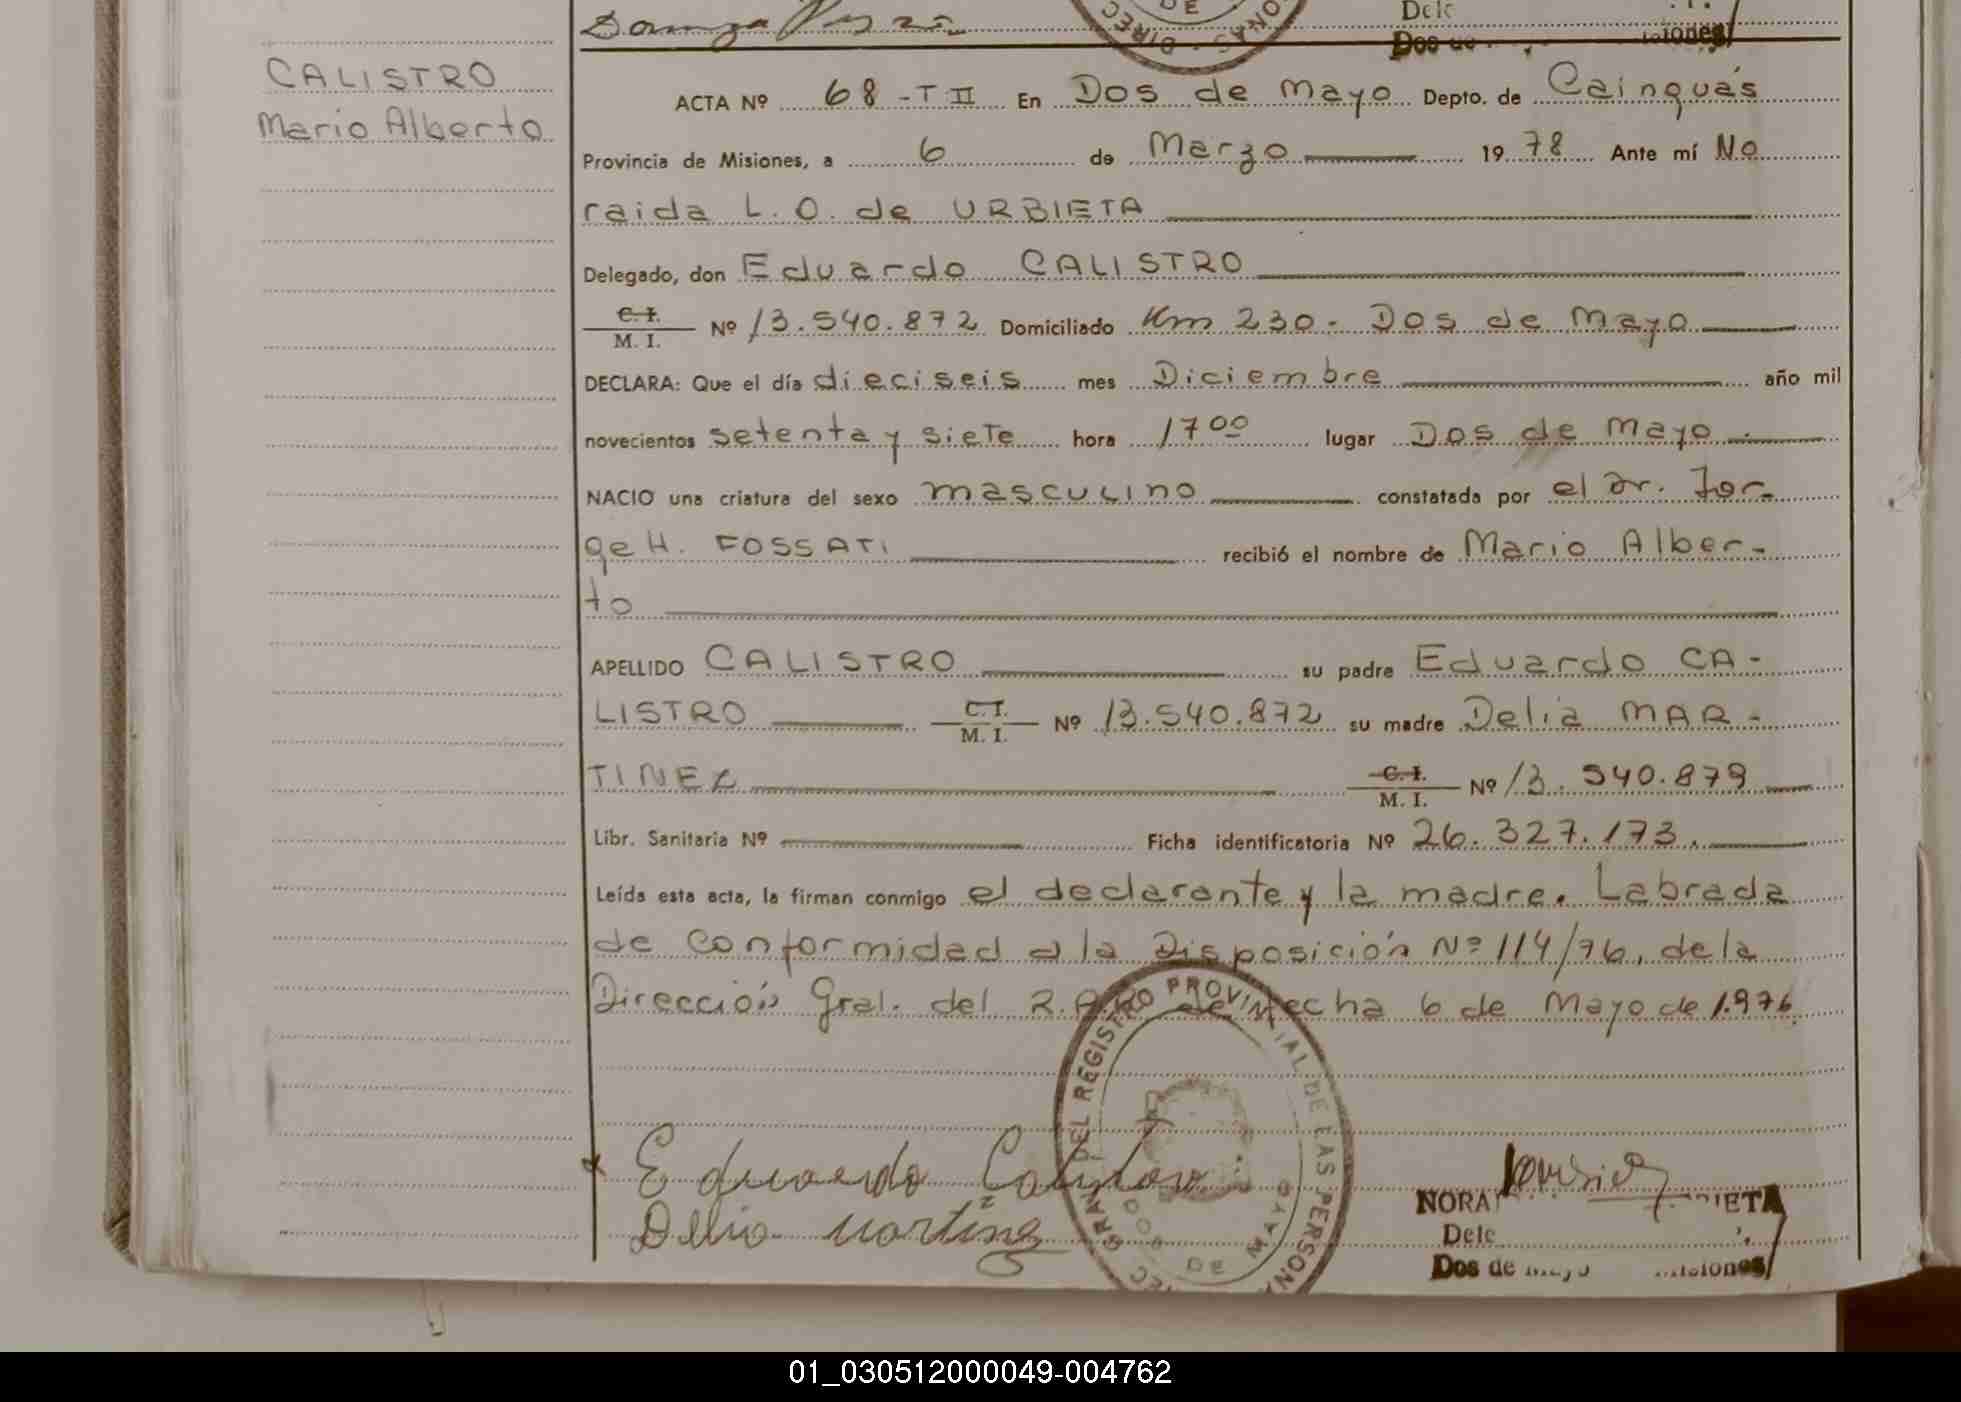 Dele
Dos de
CALISTRO
Mario Alberto
ACTA Nº 68 - T II En Dos de Mayo Depto. de Cainguás
Provincia de Misiones, a 6 de Marzo 1978 Ante mí No
raida L. O. de URBIETA
Delegado, don Eduardo CALISTRO
C. I.
M. I. Nº 13.540.872 Domiciliado Km 230 - Dos de Mayo
DECLARA: Que el día dieciseis mes Diciembre año mil
novecientos setenta y siete hora 17 00 lugar Dos de Mayo
NACIO una criatura del sexo masculino constatada por el Dr. Jor-
ge H. FOSSATI recibió el nombre de Mario Alber-
to
APELLIDO CALISTRO su padre Eduardo CA-
LISTRO C. I. M. I. Nº 13.540.872 su madre Delia MAR-
TINEZ C. I. M. I. Nº 13.540.879
Libr. Sanitaria Nº Ficha identificatoria Nº 26.327.173.
Leída esta acta, la firman conmigo el declarante y la madre. Labrada
de conformidad a la Disposición Nº 114/76, de la
Dirección Gral. del R. de fecha 6 de Mayo de 1.976
DEL REGISTRO PROVINCIAL DE LAS PERSONAS
DOS DE MAYO
Eduardo Calistro
Delia Martinez
NORA IETA
Dele
Dos de Mayo Misiones
01_030512000049-004762